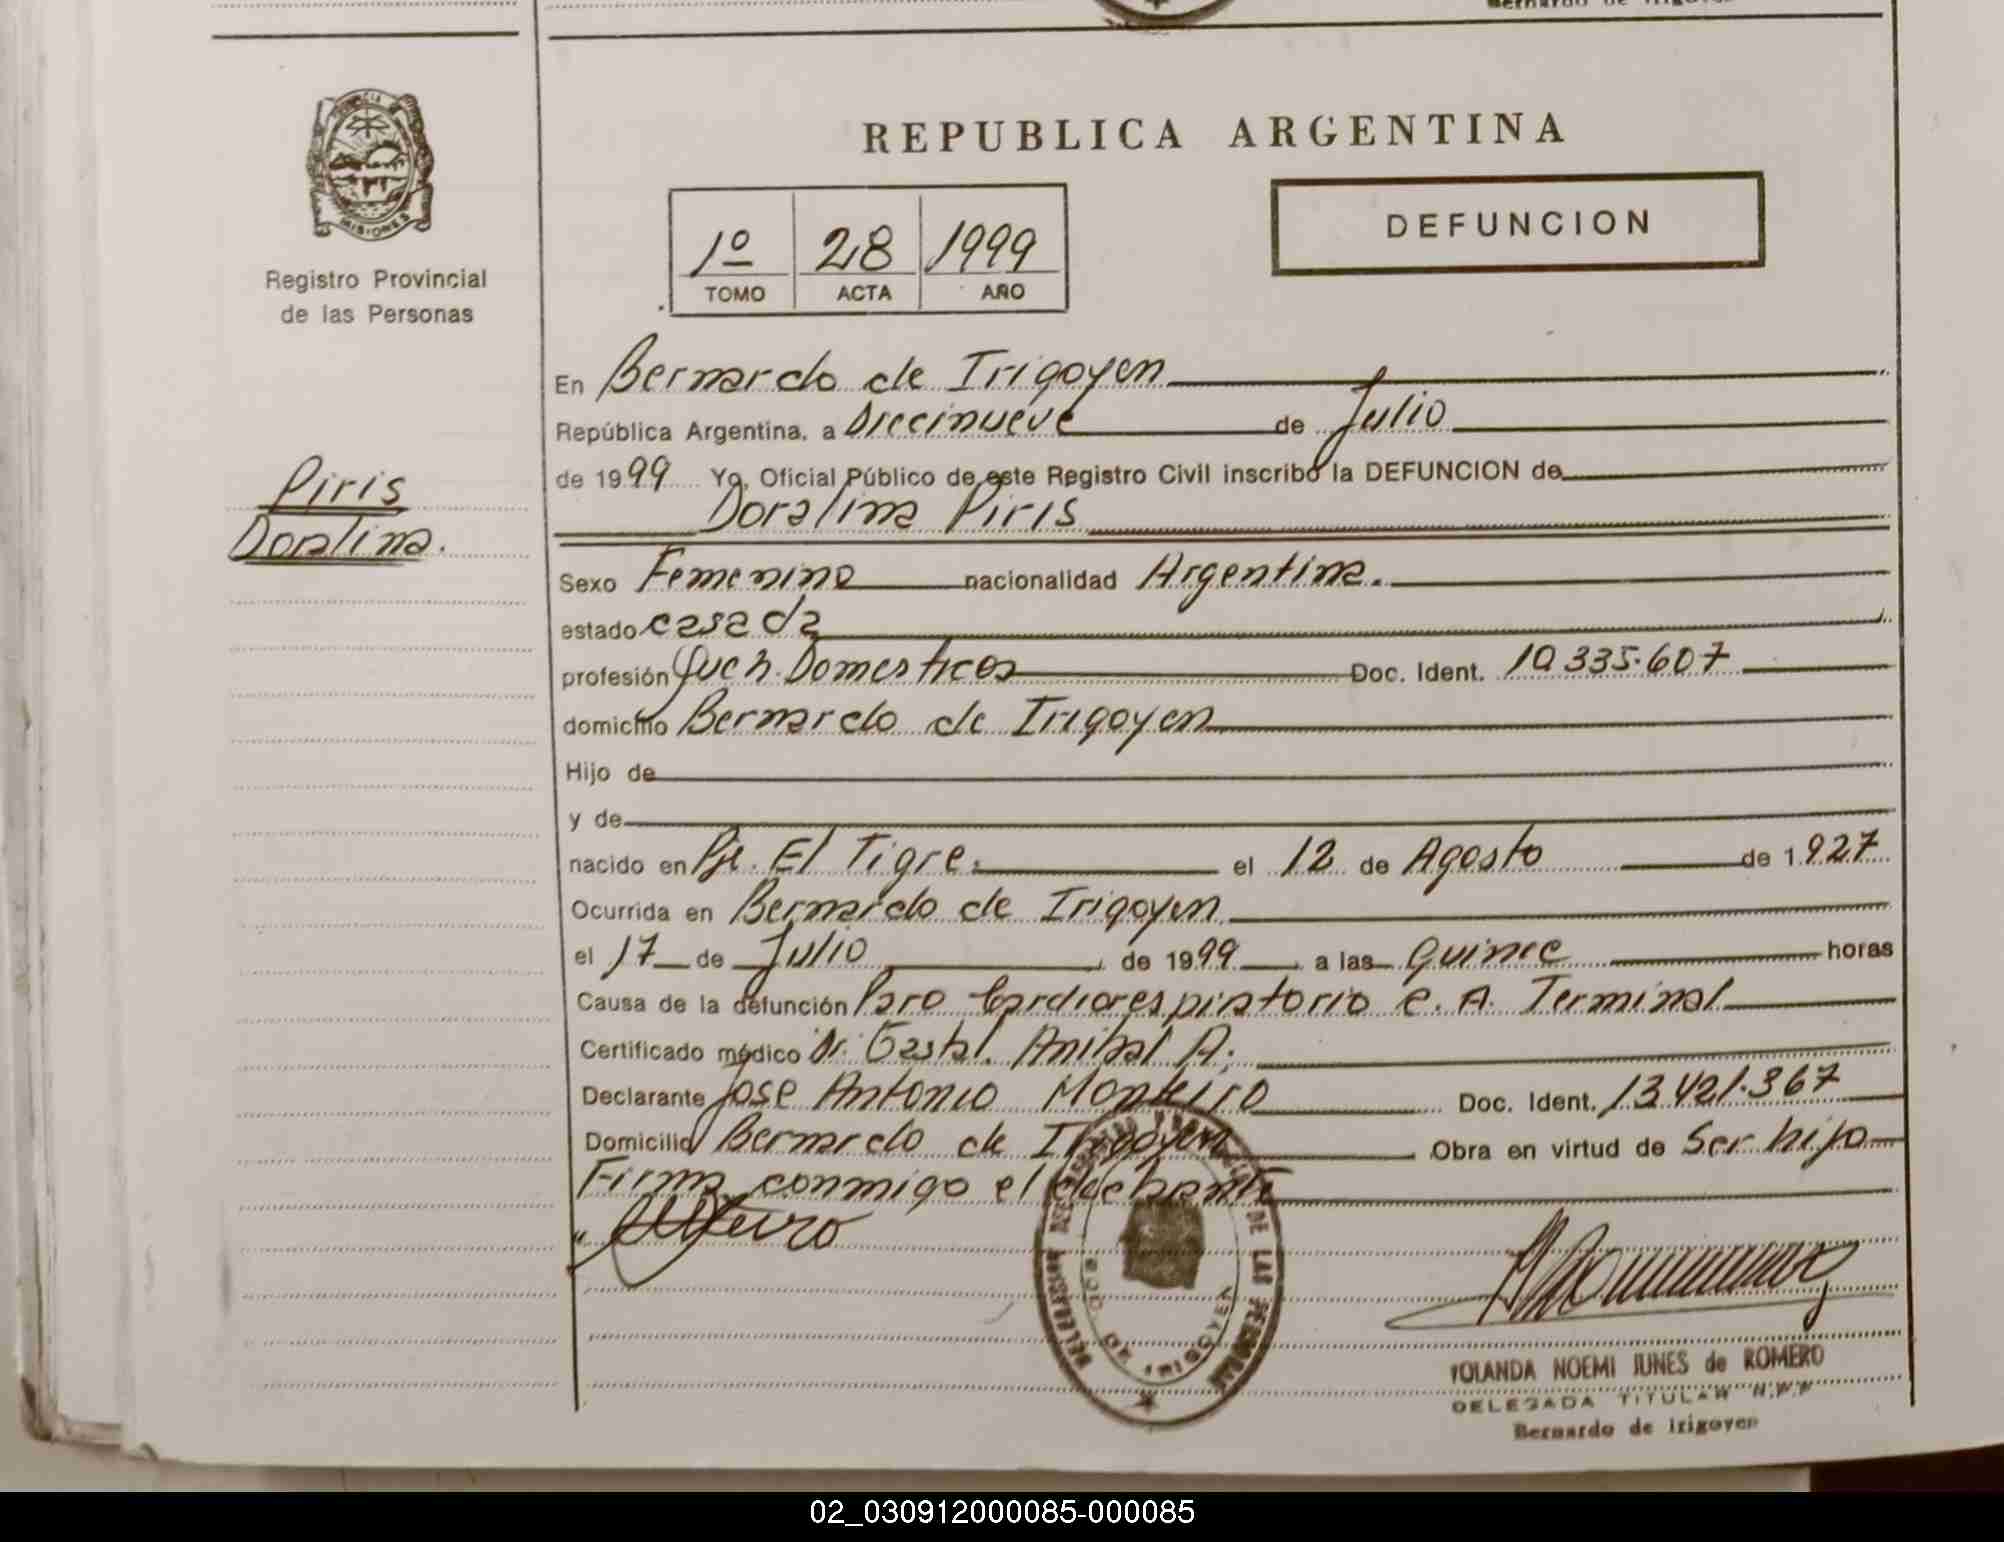 REPUBLICA ARGENTINA
MISIONES
Registro Provincial
de las Personas
1º 28 1999
TOMO ACTA AÑO
DEFUNCION
Piris
Doralina.
En Bernardo de Irigoyen
República Argentina, a Diecinueve de Julio
de 1999 Yo, Oficial Público de este Registro Civil inscribo la DEFUNCION de
Doralina Piris
Sexo Femenino nacionalidad Argentina.
estado casada
profesión Queh. Domesticos Doc. Ident. 10.335.607
domicilio Bernardo de Irigoyen
Hijo de
y de
nacido en Pje. El Tigre. el 12 de Agosto de 1.927
Ocurrida en Bernardo de Irigoyen
el 17 de Julio de 1999 a las Quince horas
Causa de la defunción Paro Cardiorespiratorio C. A. Terminal
Certificado médico Dr. Anibal A.
Declarante Jose Antonio Monteiro Doc. Ident. 13.421.367
Domicilio Bernardo de Irigoyen Obra en virtud de Ser hijo
Firma conmigo el declarante
YOLANDA NOEMI JUNES de ROMERO
DELEGADA TITULAR
Bernardo de Irigoyen
02_030912000085-000085